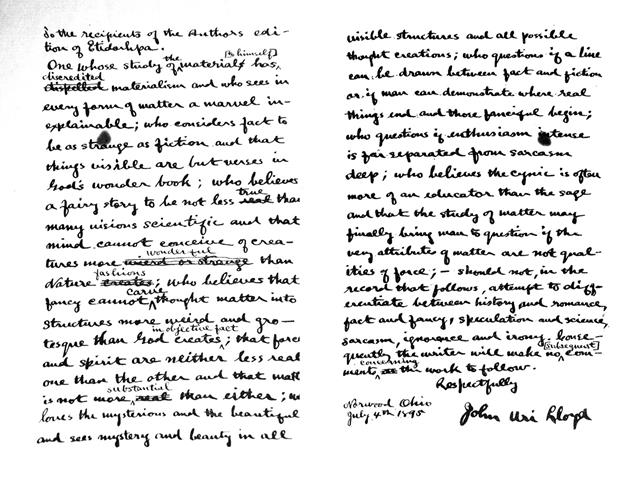 To the recipients of the Authors edi-
tion of Etidorhpa.
One whose study of the materials has, [to himself]
discredited dispelled materialism and who sees in
every form of matter a marvel in-
explainable; who considers fact to
be as strange as fiction and that
things visible are but verses in
God's wonder book; who believes
a fairy story to be not less true real than
many visions scientific and that
mind cannot conceive of crea-
tures more wonderful weird or strange than
Nature fashions creates; who believes that
fancy cannot carve thought matter into
structures more weird and gro-
tesque than God creates in objective fact; that force
and spirit are neither less real
one than the other and that matt
is not more substantial real than either; w
loves the mysterious and the beautiful
and sees mystery and beauty in all
visible structures and all possible
thought creations; who questions if a line
can be drawn between fact and fiction
or if man can demonstrate where real
things end and those fanciful begin;
who questions if enthusiasm intense
is far separated from sarcasm
deep; who believes the cynic is often
more of an educator than the sage
and that the study of matter may
finally bring man to question if the
very attributes of matter are not qual-
ities of force; - should not, in the
record that follows, attempt to diff-
erentiate between history and romance,
fact and fancy, speculation and science,
sarcasm, ignorance and irony. Conse-
quently the writer will make no [subsequent] com-
ments concerning on the work to follow.
Respectfully
Norwood Ohio
July 4th 1895
John Uri Lloyd